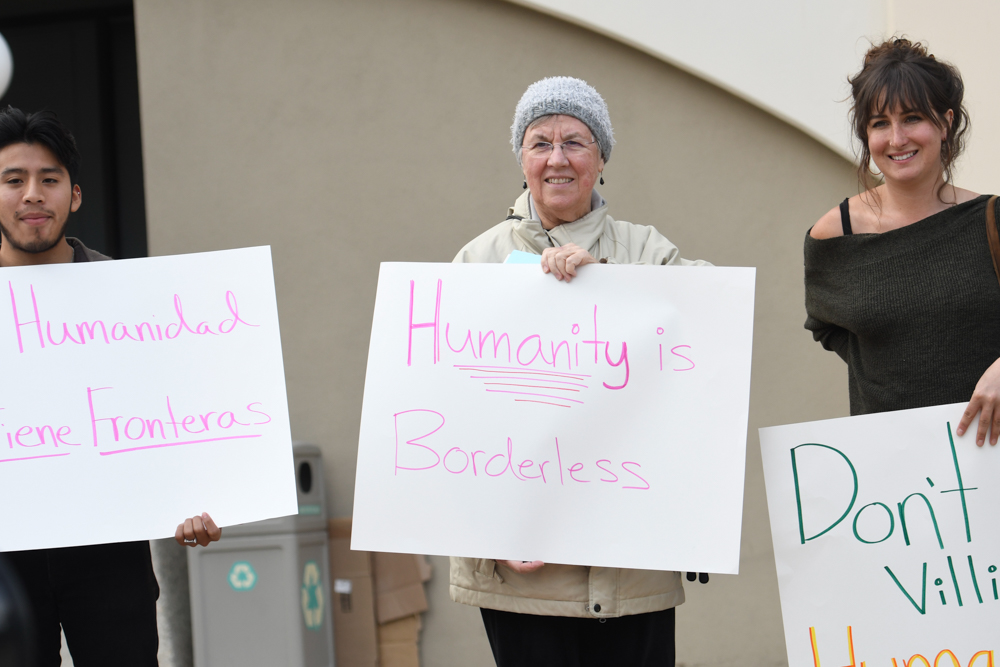 Humanidad
iene Fronteras
Humanity is
Borderless
Don't
Villi
Huma